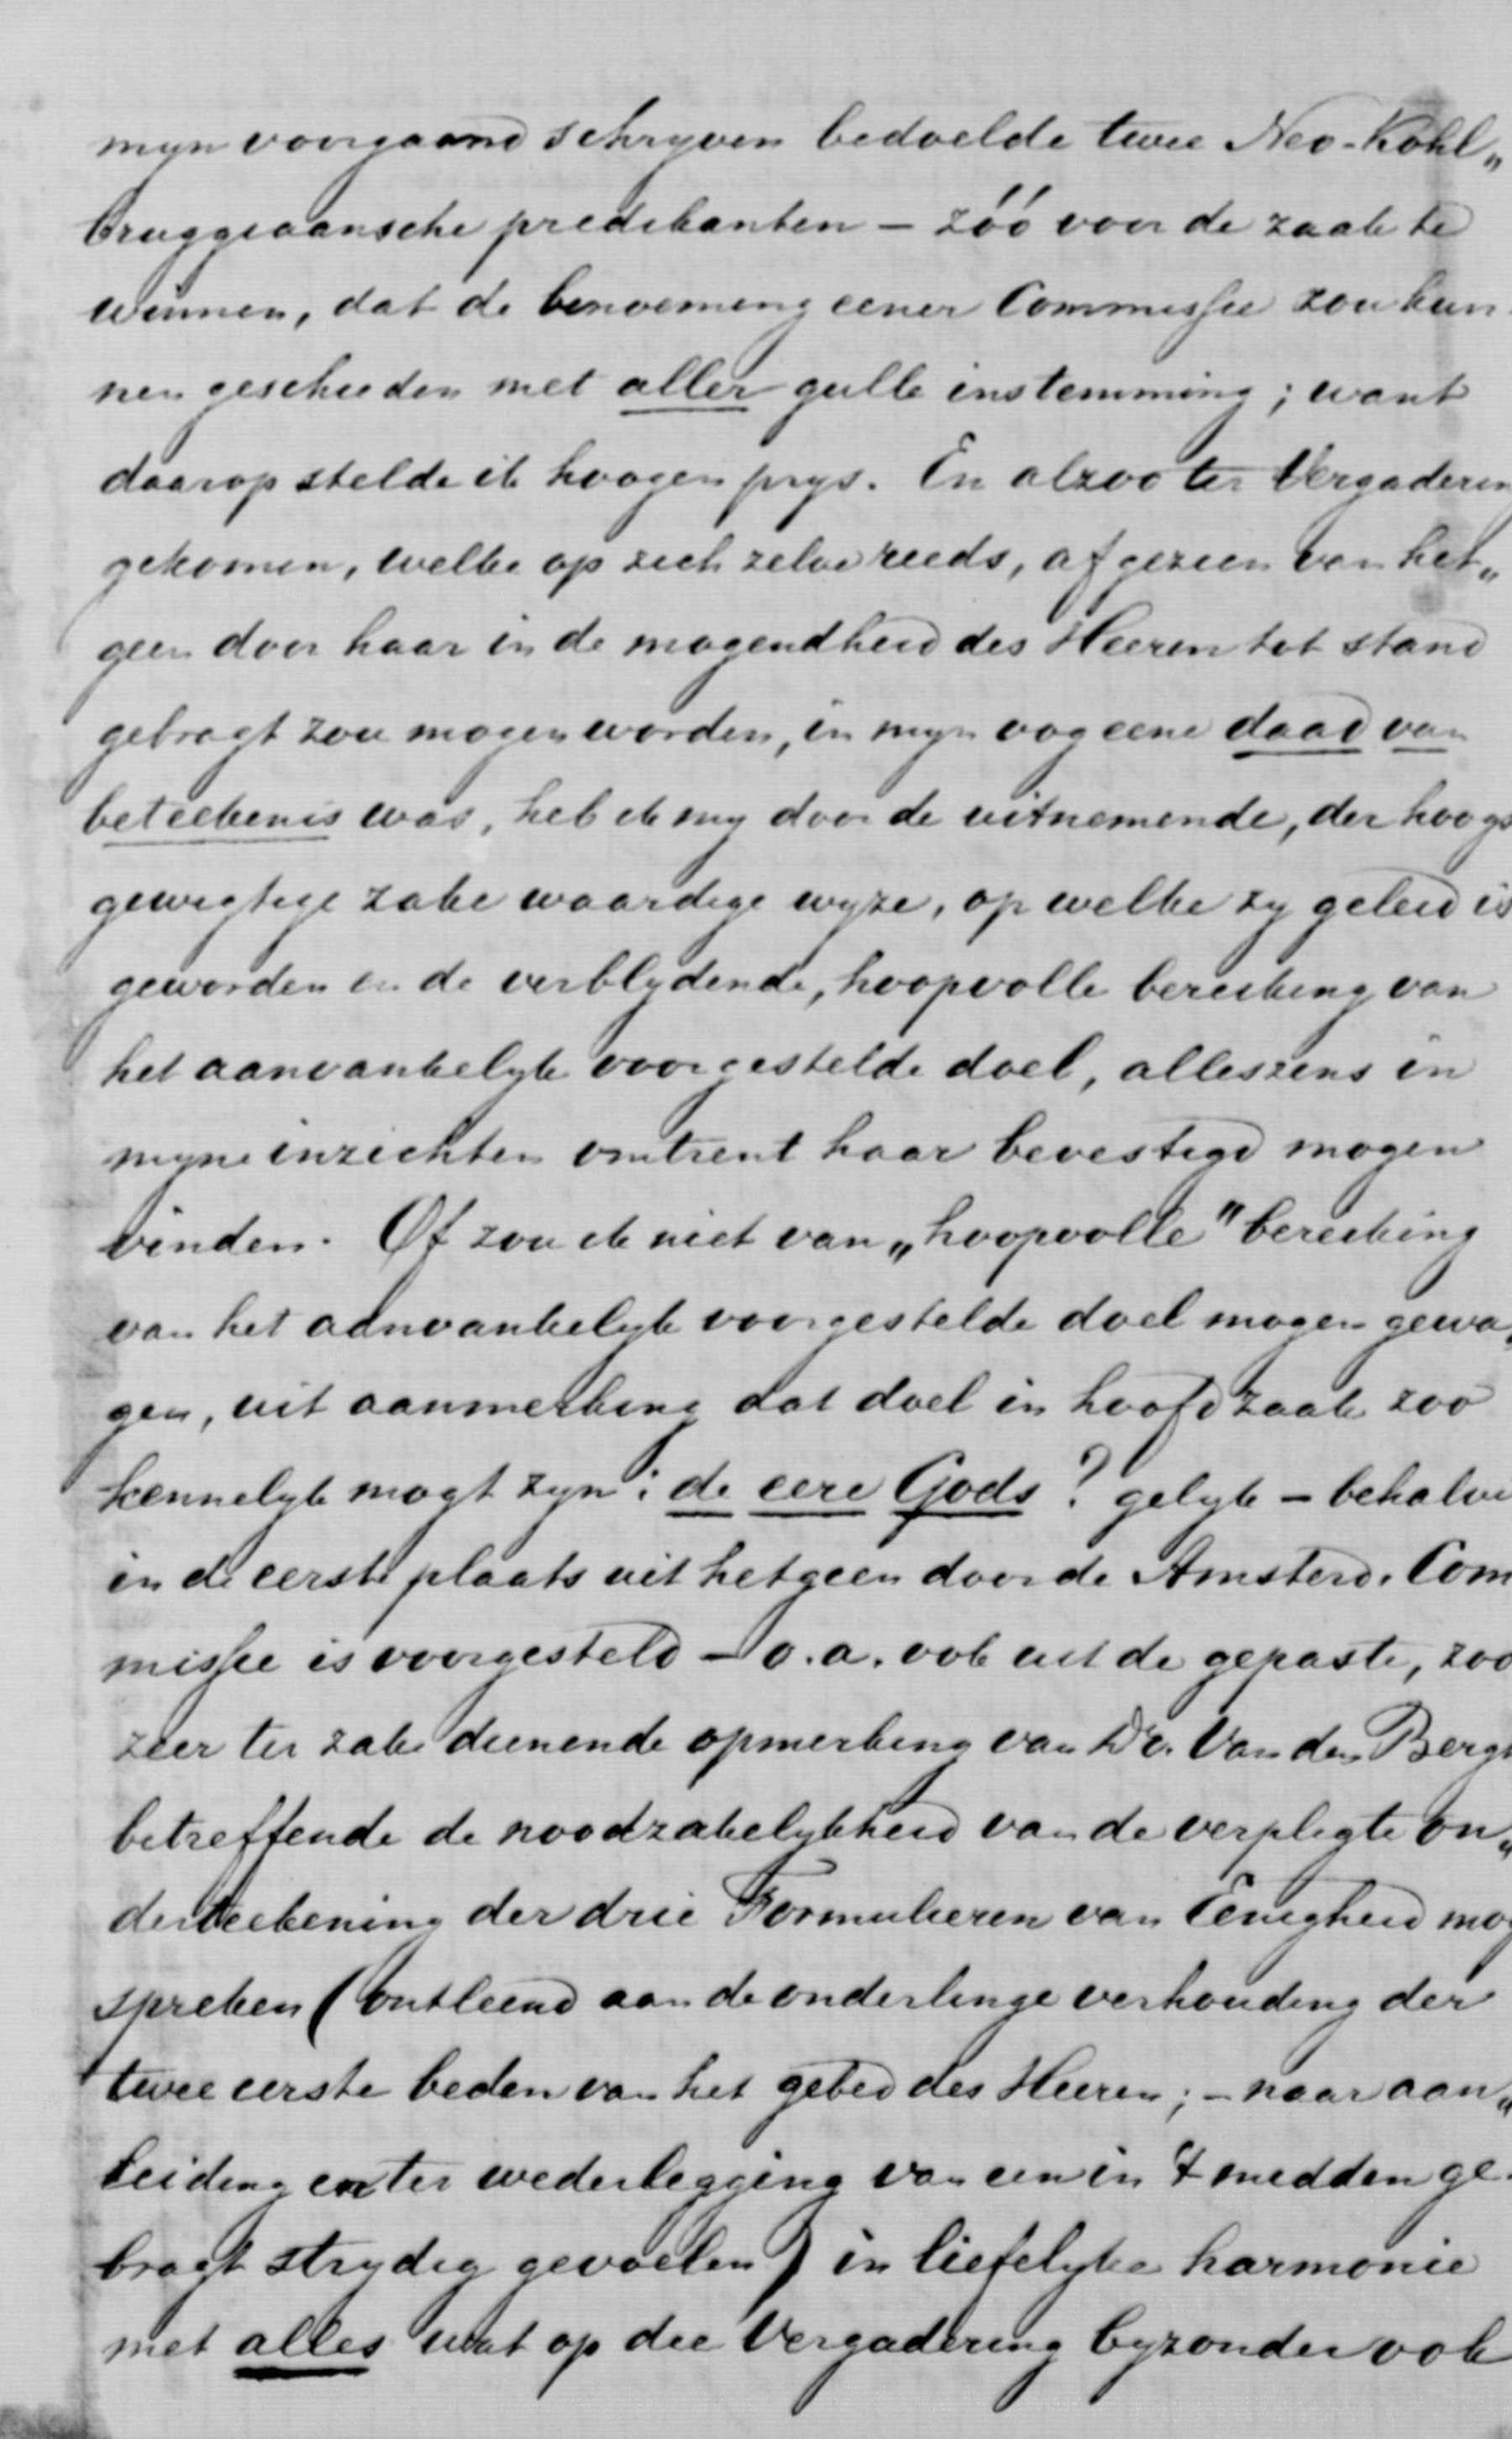 myn voorgaand schryven bedoelde twee Neo-Kohl„
bruggiaansche predikanten – zóó voor de zaak te
winnen, dat de benoeming eener Commissie zou kun
nen geschieden met aller gulle instemming; want
daarop stelde ik hoogen prys. En alzoo ter Vergaderin
gekomen, welke op zich zelve reeds, afgezien van het„
geen door haar in de mogendheid des Heeren tot stand
gebragt zou mogen worden, in myn oog eene daad van
beteekenis was, heb ik my door de uitnemende, der hoogs
gewigtige zake waardige wyze, op welke zy geleid is
geworden en de verblydende, hoopvolle bereiking van
het aanvankelyk voorgestelde doel, alleszins in
myne inzichten omtrent haar bevestigd mogen
vinden. Of zou ik niet van „hoopvolle" bereiking
van het aanvankelyk voorgestelde doel mogen gewa„
gen, uit aanmerking dat doel in hoofdzaak zoo
kennelyk mogt zyn: de eere Gods? gelyk – behalve
in de eerste plaats uit hetgeen door de Amsterd. Com
missie is voorgesteld – o.a. ook uit de gepaste, zoo
zeer ter zake dienende opmerking van Dr. Van den Bergh
betreffende de noodzakelykheid van de verpligte on„
derteekening der drie Formulieren van Eenigheid mog
spreken (ontleend aan de onderlinge verhouding der
twee eerste beden van het gebed des Heeren; – naar aan„
leiding en ter wederlegging van een in 't midden ge-
bragt strydig gevoelen) in liefelyke harmonie
met alles wat op die Vergadering byzonder ook